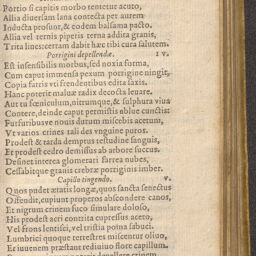 Portio si capitis morbo tentetur acuto,
Allia diuersam lana contecta per aurem
Inducta prosunt, & eodem balsama pacto.
Allia vel ternis piperis terna addita granis,
Trita lines: certam dabit hæc tibi cura salutem.
Porrigini depellendæ. IV.
Est insensibilis morbus, sed noxia forma,
Cum caput immensa pexum porrigine ningit,
Copia farris vti frendentibus edita saxis.
Hanc poterit maluæ radix decocta leuare.
Aut tu fœniculum, nitrumque, & sulphura viua
Contere, deinde caput permistis ablue cunctis:
Furfuribusve nouis durum miscebis acetum,
Vt varios crines tali des vnguine puros.
Prodest & tarda demptus testudine sanguis,
Et prodest cedro demissus ab arbore succus.
Desinet interea glomerari farrea nubes,
Cessabitque granis crebræ porriginis imber.
Capillo tingendo. V.
Quos pudet ætatis longæ, quos sancta senectus
Offendit, cupiunt properos abscondere canos,
Et nigrum crinem fuco simulare doloso,
His prodest acri contrita cupressus aceto,
Vel frons lentisci, vel tristia poma sabuci.
Lumbrici quoque terrestres miscentur oliuo,
Et iuuenem præstant rediuiuo flore capillum.